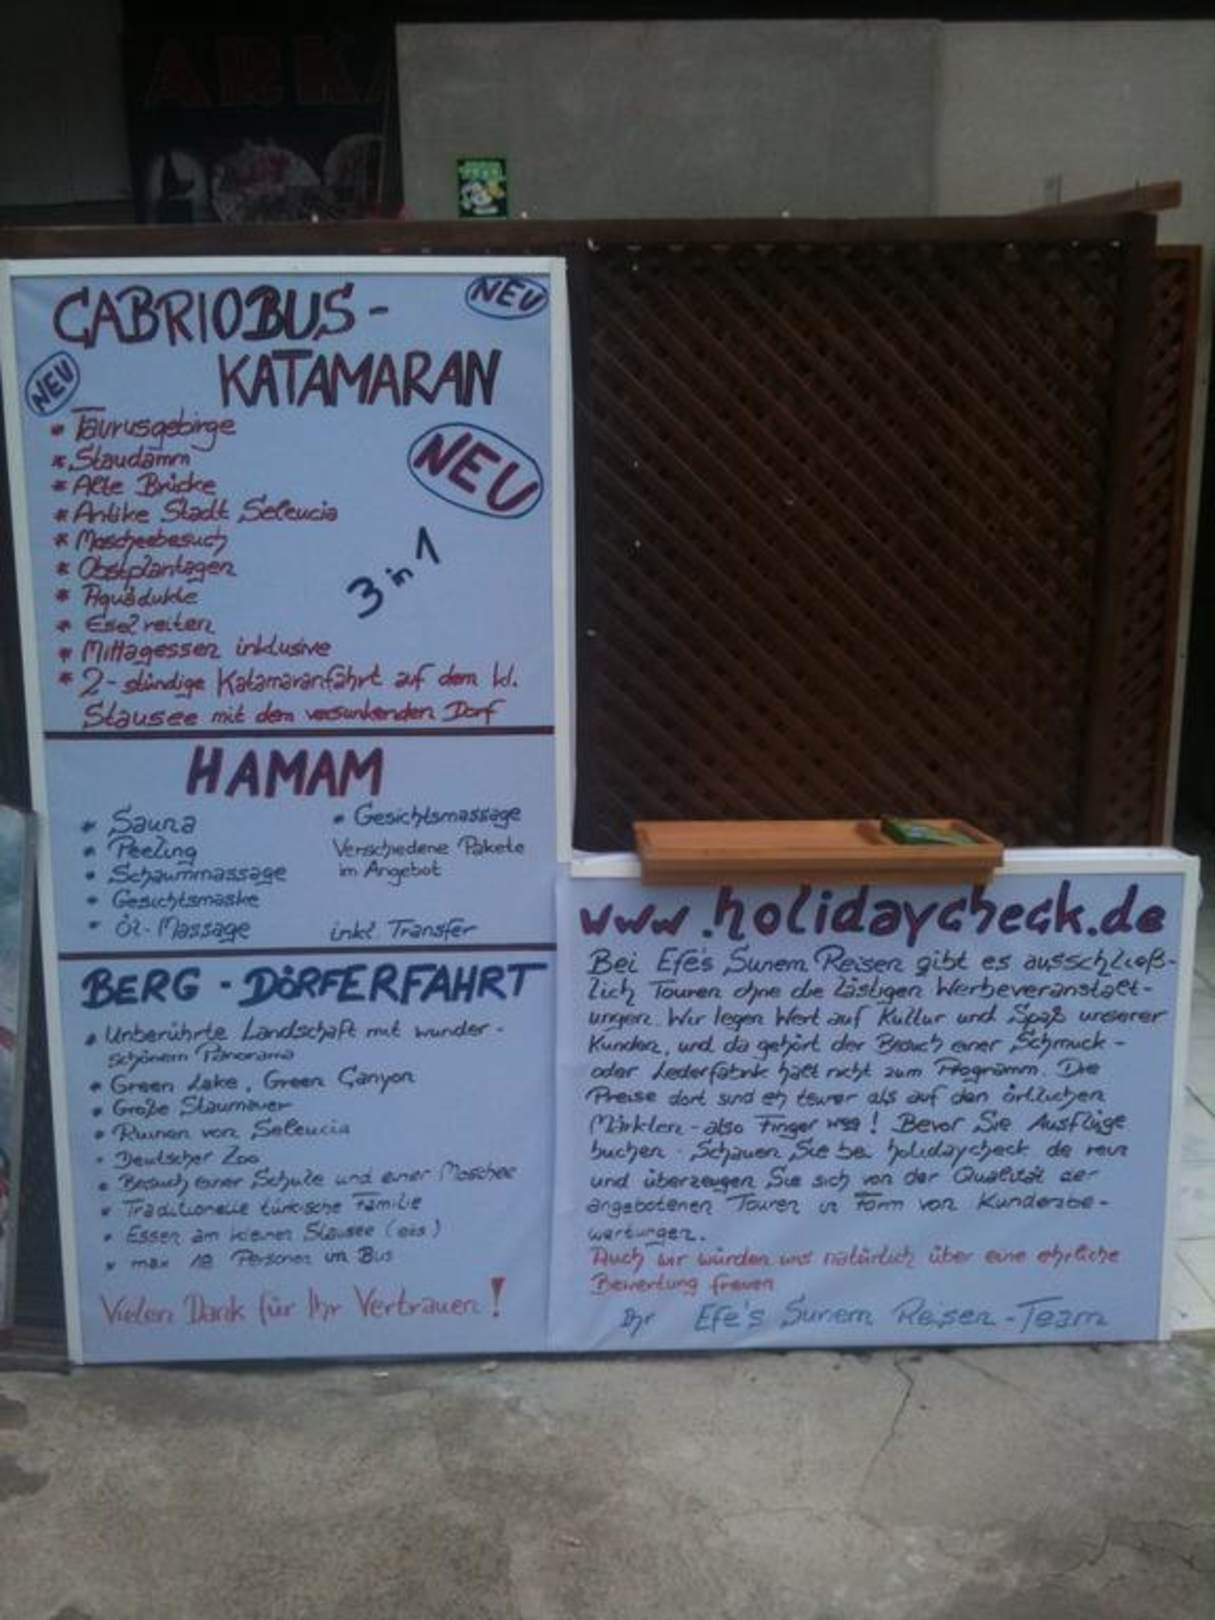 ARKA
NEU
CABRIOBUS-
KATAMARAN
NEU
* Taurusgebirge
* Staudamm
* Alte Brücke
* Antike Stadt Seleucia
* Moscheebesuch
* Obstplantagen
* Aquädukte
* Esel reiten
* Mittagessen inklusive
* 2-stündige Katamaranfahrt auf dem kl.
Stausee mit dem versunkenden Dorf
NEU
3 in 1
HAMAM
* Sauna
* Peeling
* Schaummassage
* Gesichtsmaske
* Öl-Massage
* Gesichtsmassage
Verschiedene Pakete
im Angebot
inkl. Transfer
BERG-DÖRFERFAHRT
* Unberührte Landschaft mit wunder-
schönem Panorama
* Green Lake, Green Canyon
* Große Staumauer
* Ruinen von Seleucia
* Deutscher Zoo
* Besuch einer Schule und einer Moschee
* Traditionelle türkische Familie
* Essen am kleinen Stausee
* max 18 Personen im Bus
Vielen Dank für Ihr Vertrauen!
www.holidaycheck.de
Bei Efe's Sunem Reisen gibt es ausschließ-
lich Touren ohne die lästigen Werbeveranstalt-
ungen. Wir legen Wert auf Kultur und Spaß unserer
Kunden, und da gehört der Besuch einer Schmuck-
oder Lederfabrik halt nicht zum Programm. Die
Preise dort sind eh teurer als auf den örtlichen
Märkten - also Finger weg! Bevor Sie Ausflüge
buchen - Schauen Sie bei holidaycheck.de rein
und überzeugen Sie sich von der Qualität der
angebotenen Touren in Form von Kundenbe-
wertungen.
Auch wir würden uns natürlich über eine ehrliche
Bewertung freuen
Ihr Efe's Sunem Reisen-Team